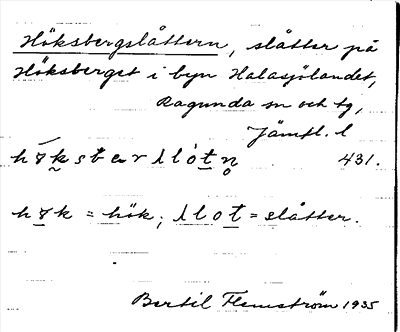 Höksbergslåttern, slåtter på
Höksberget i byn Halasjölandet,
Ragunda sn och tg,
Jämtl. l
431.
h = hök; = slåtter.
Bertil Flemström 1935